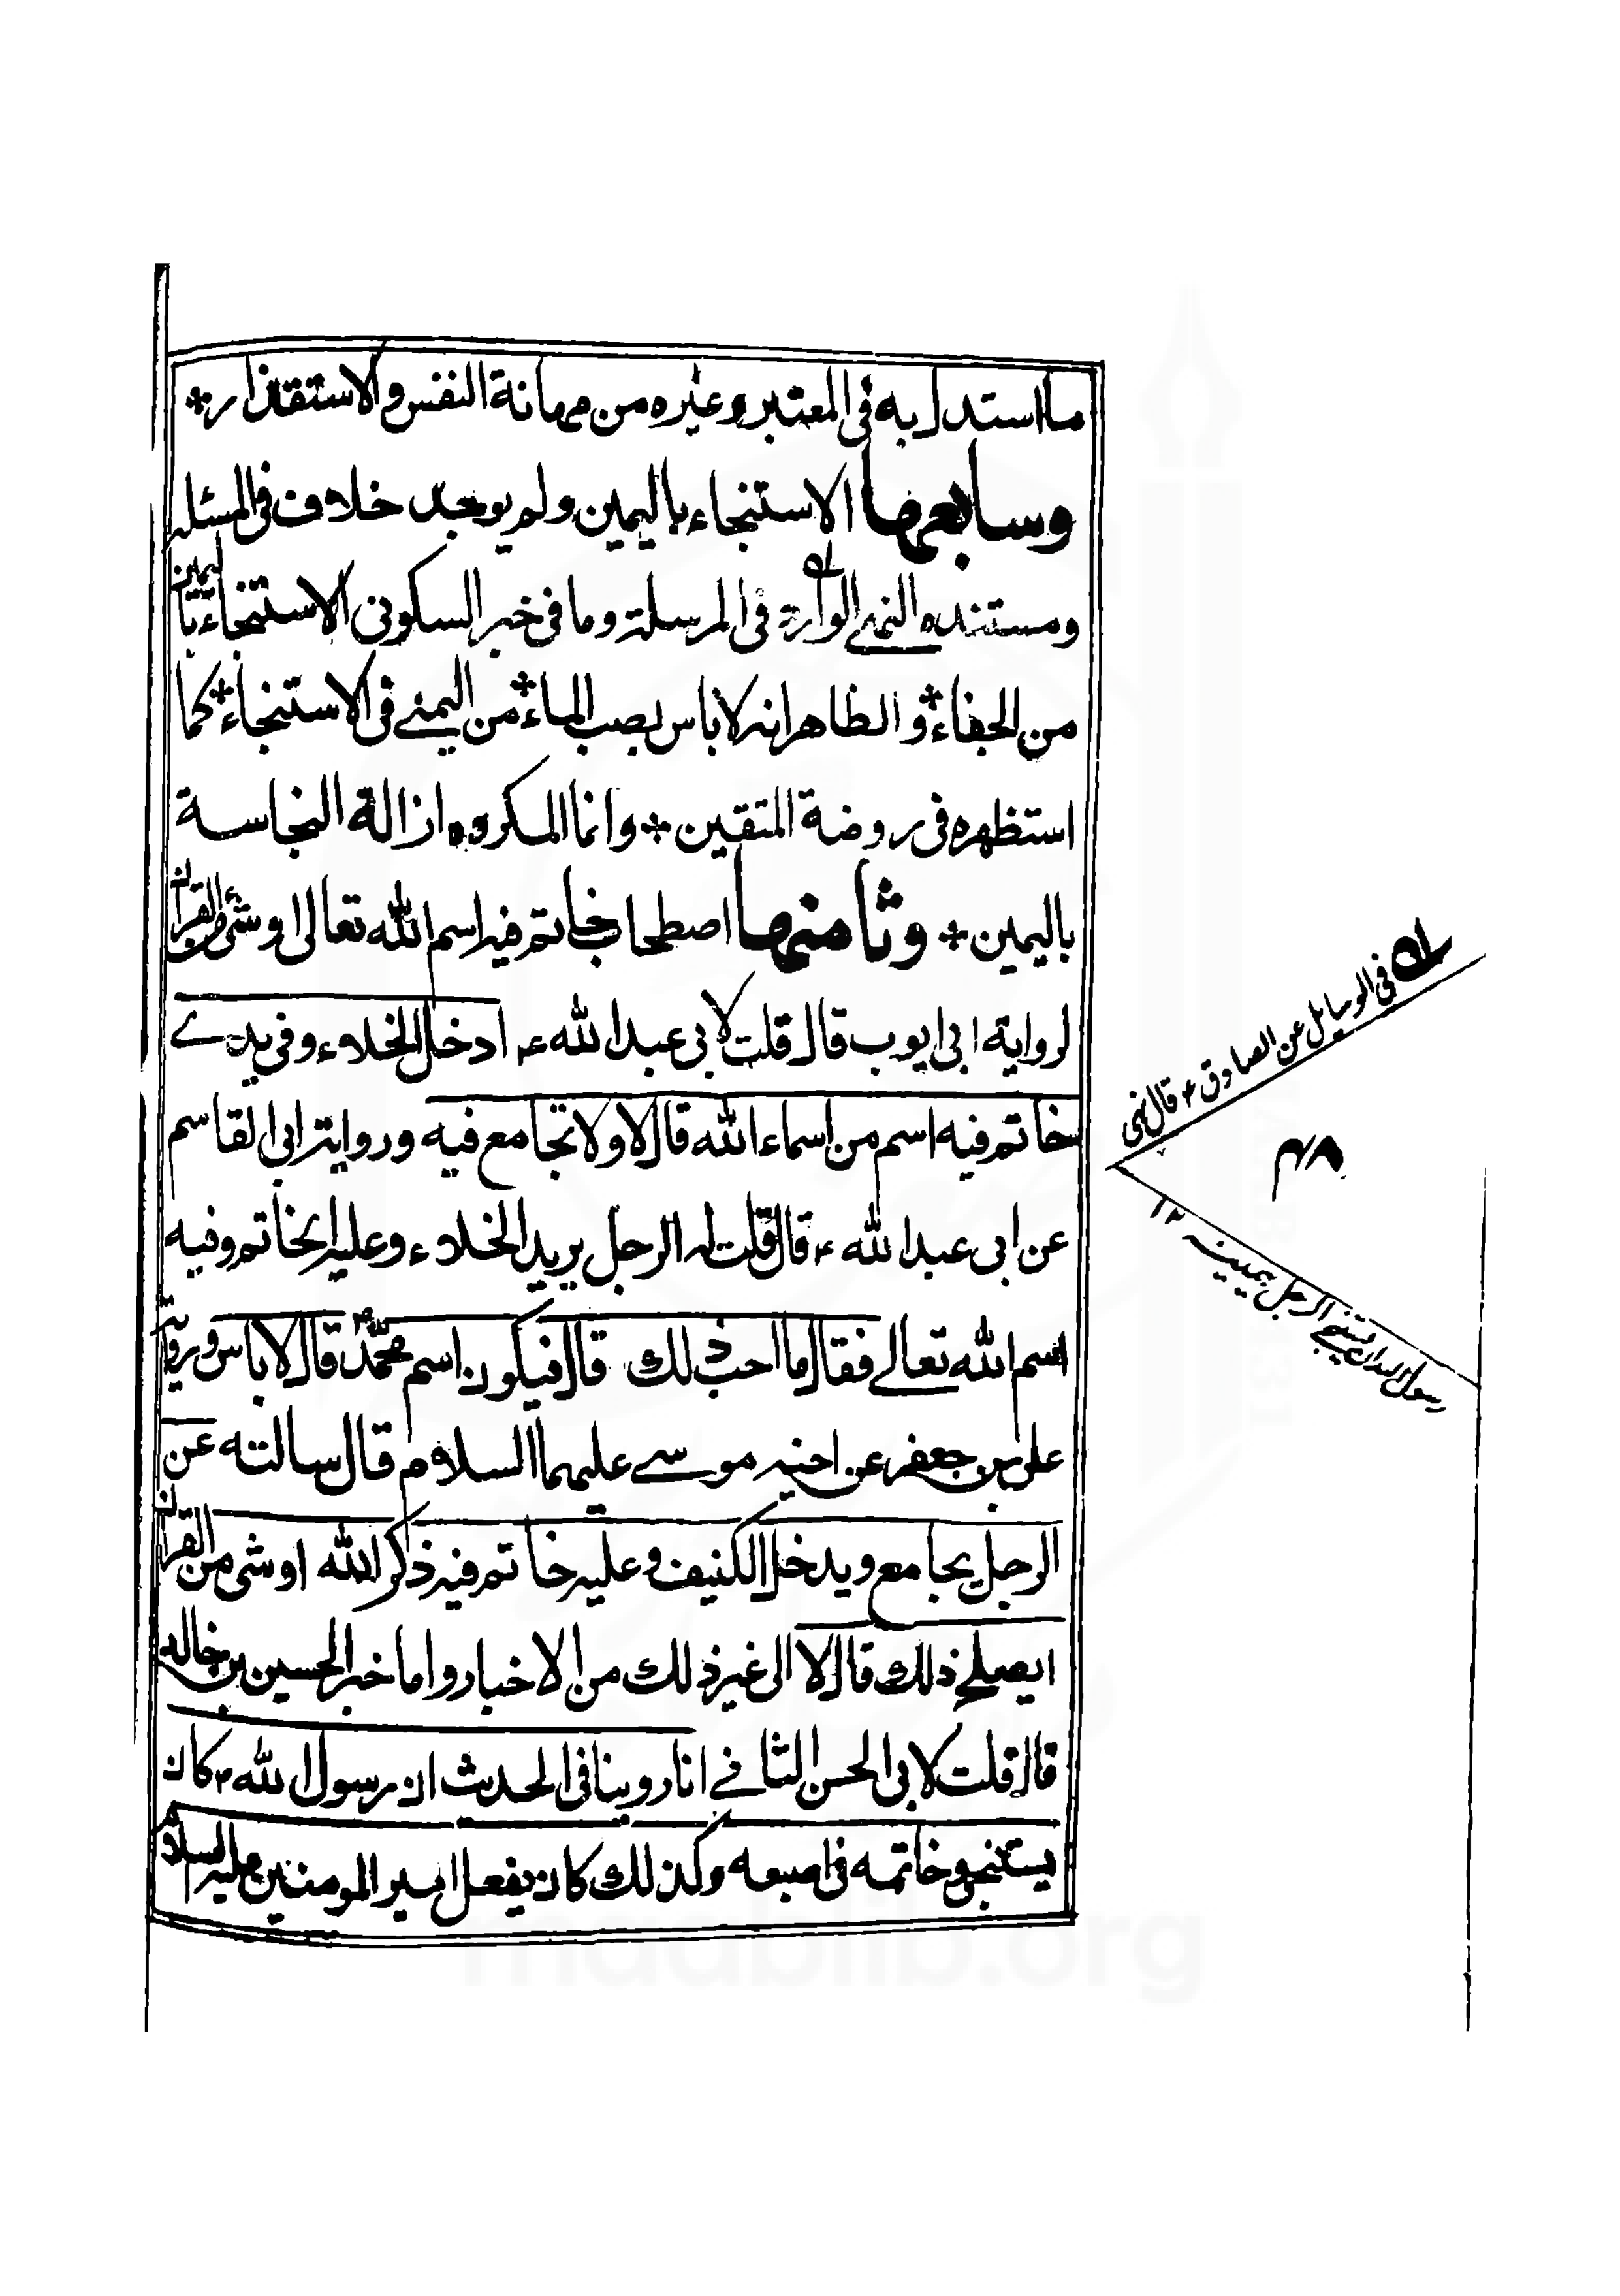 ما استدل به فى المعتبر وغيره من مهانة النفس والاستقذار
وسابعها الاستنجاء باليمين ولم يوجد خلاف فى المسئلة
ومستنده النهى الوارد فى المرسلة وما فى خبر السكونى الاستنجاء باليمين
من الجفاء والظاهر انه لا باس بصب الماء من اليمنے فى الاستنجاء كما
استظهره فى روضة المتقين وانما المكروه ازالة النجاسة
باليمين وثامنها اصطحاب خاتم فيه اسم الله تعالى او شئ من القران
لرواية ابى ايوب قال قلت لابى عبد الله ع ادخل الخلاء وفى يدے
خاتم فيه اسم من اسماء الله قال لا ولا تجامع فيه ورواية ابى القاسم
عن ابى عبد الله ع قال قلت له الرجل يريد الخلاء وعليه الخاتم وفيه
اسم الله تعالے فقال ما احب ذلك قال فيكون اسم محمد ص قال لا باس ورواية
على بن جعفر عن اخيه موسے عليهما السلام قال سالته عن
الرجل يجامع ويدخل الكنيف وعليه خاتم فيه ذكر الله او شئ من القران
ايصلح ذلك قال لا الى غير ذلك من الاخبار واما خبر الحسين بن خالد
قال قلت لابى الحسن الثانے انا روينا فى الحديث ان رسول الله ص كان
يستنجى وخاتمه فى اصبعه وكذلك كان يفعل امير المومنين عليه السلام
فى الوسايل عن الصادق ع قال نهى
رسول الله ان يستنجے الرجل بيمينه ١٢
٤٨
madblib.org